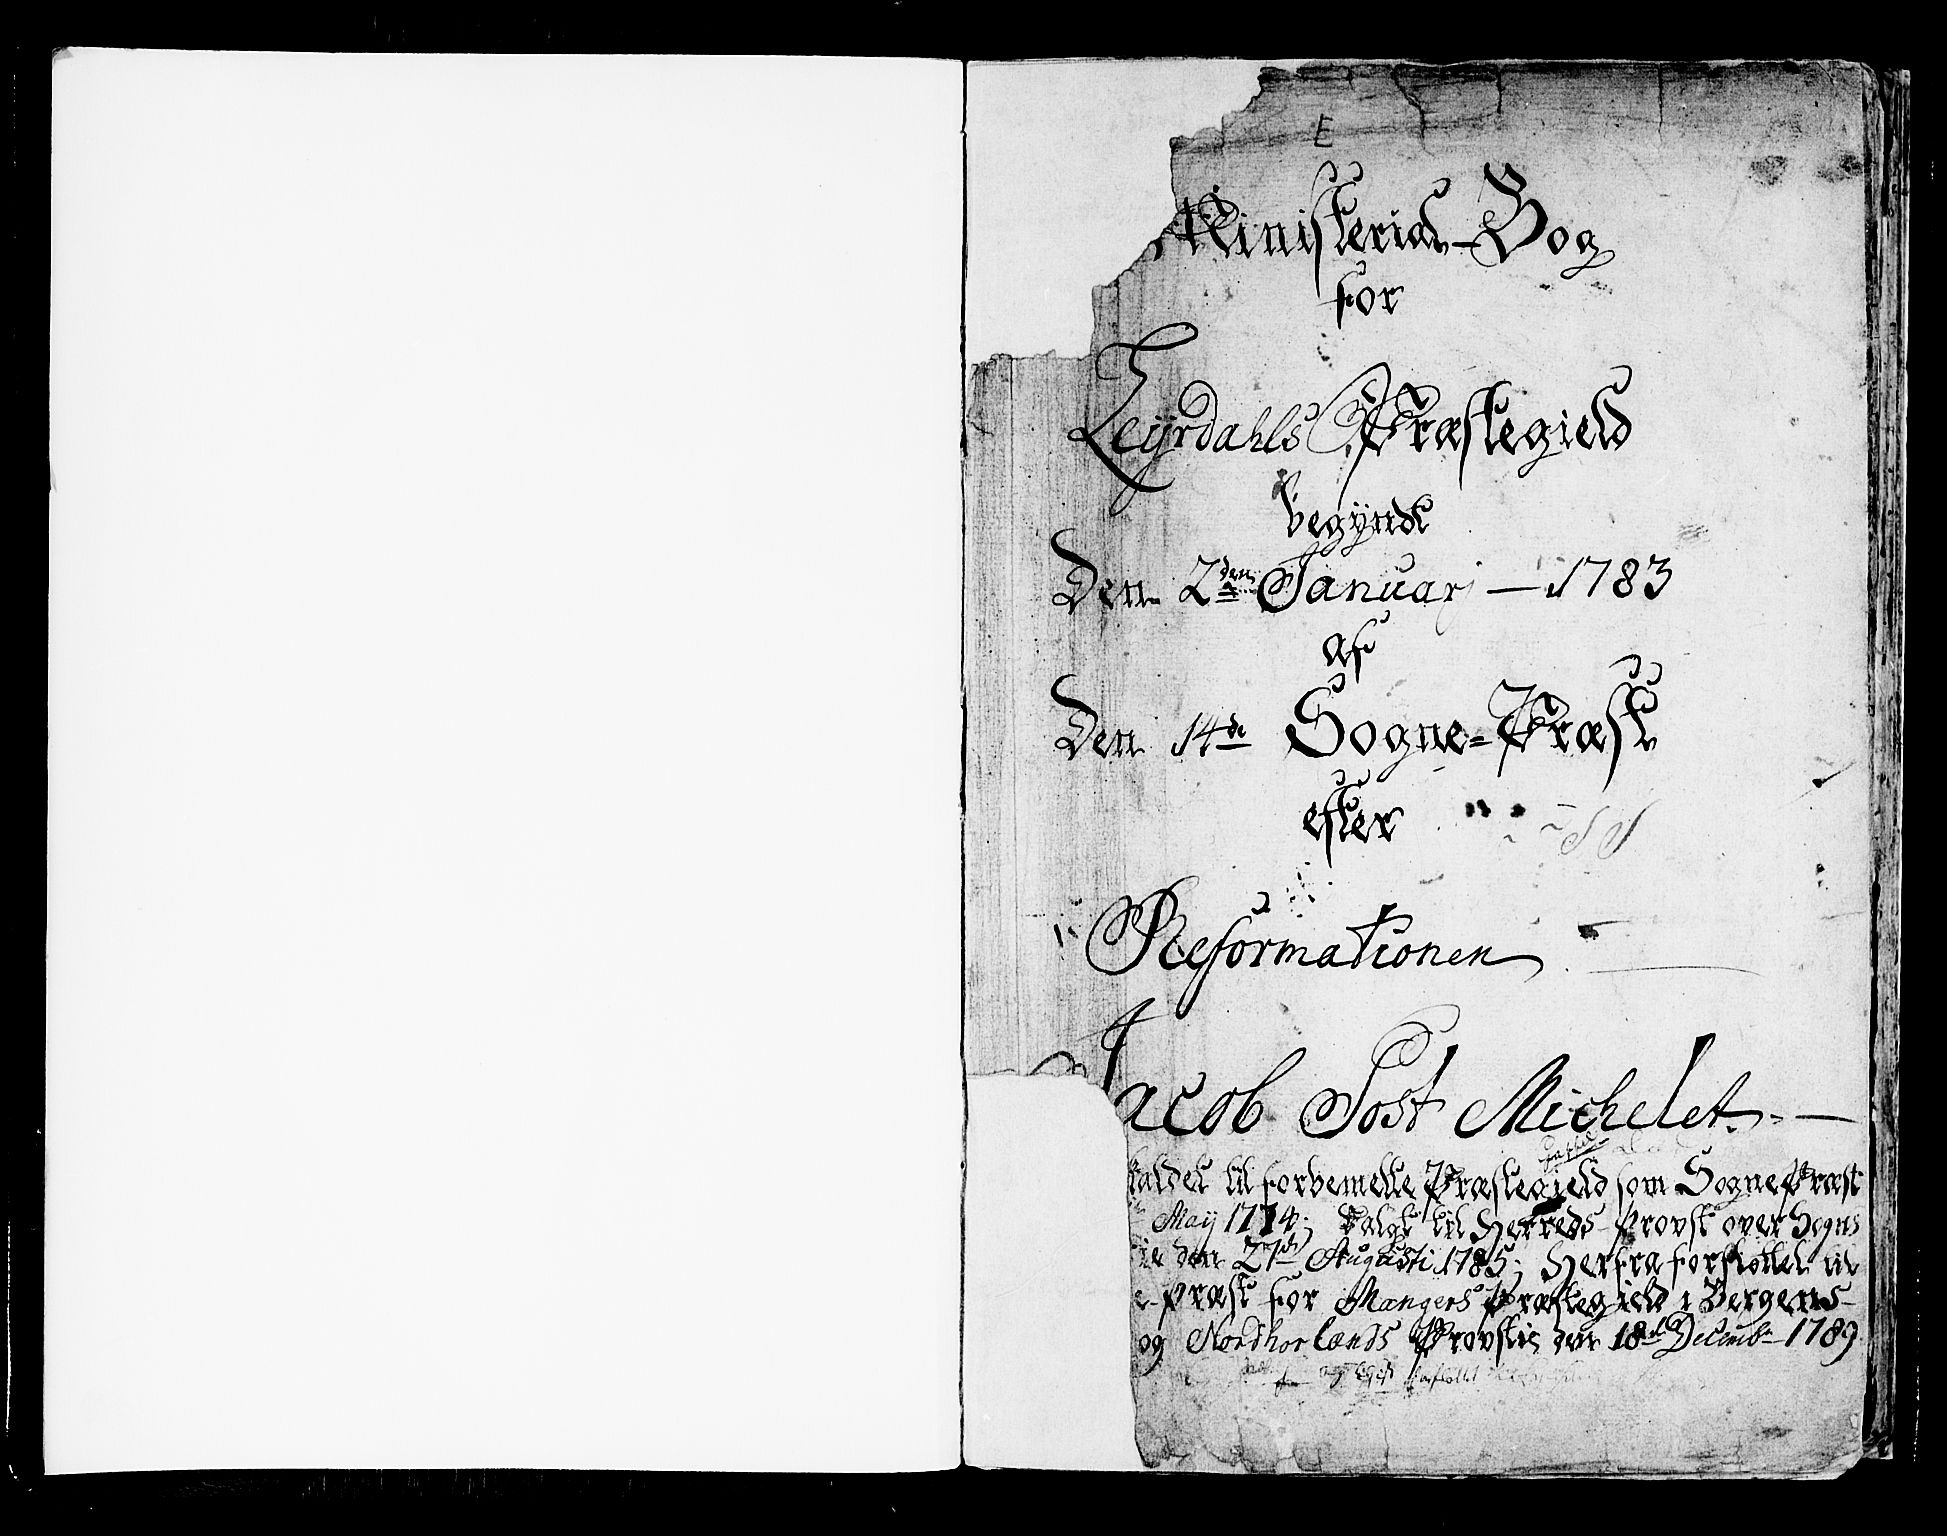 E
Ministerial-Bog
for
Leyrdahls Præstegield
begyndt
Den 2den Januarj — 1783
af
Den 14de Sogne=Præst
efter
Reformationen
Jacob Post Michelet. —
kaldet til forbemelte Præstegield som Sogne Præst
May 1774; Valgt til Herreds-Provst over Sogns
den 27de Augusti 1785; Herfra forflöttet til
Præst for Mangers Præstegield i Bergens-
og Nordhorlands Provstie den 18de Decemb 1789